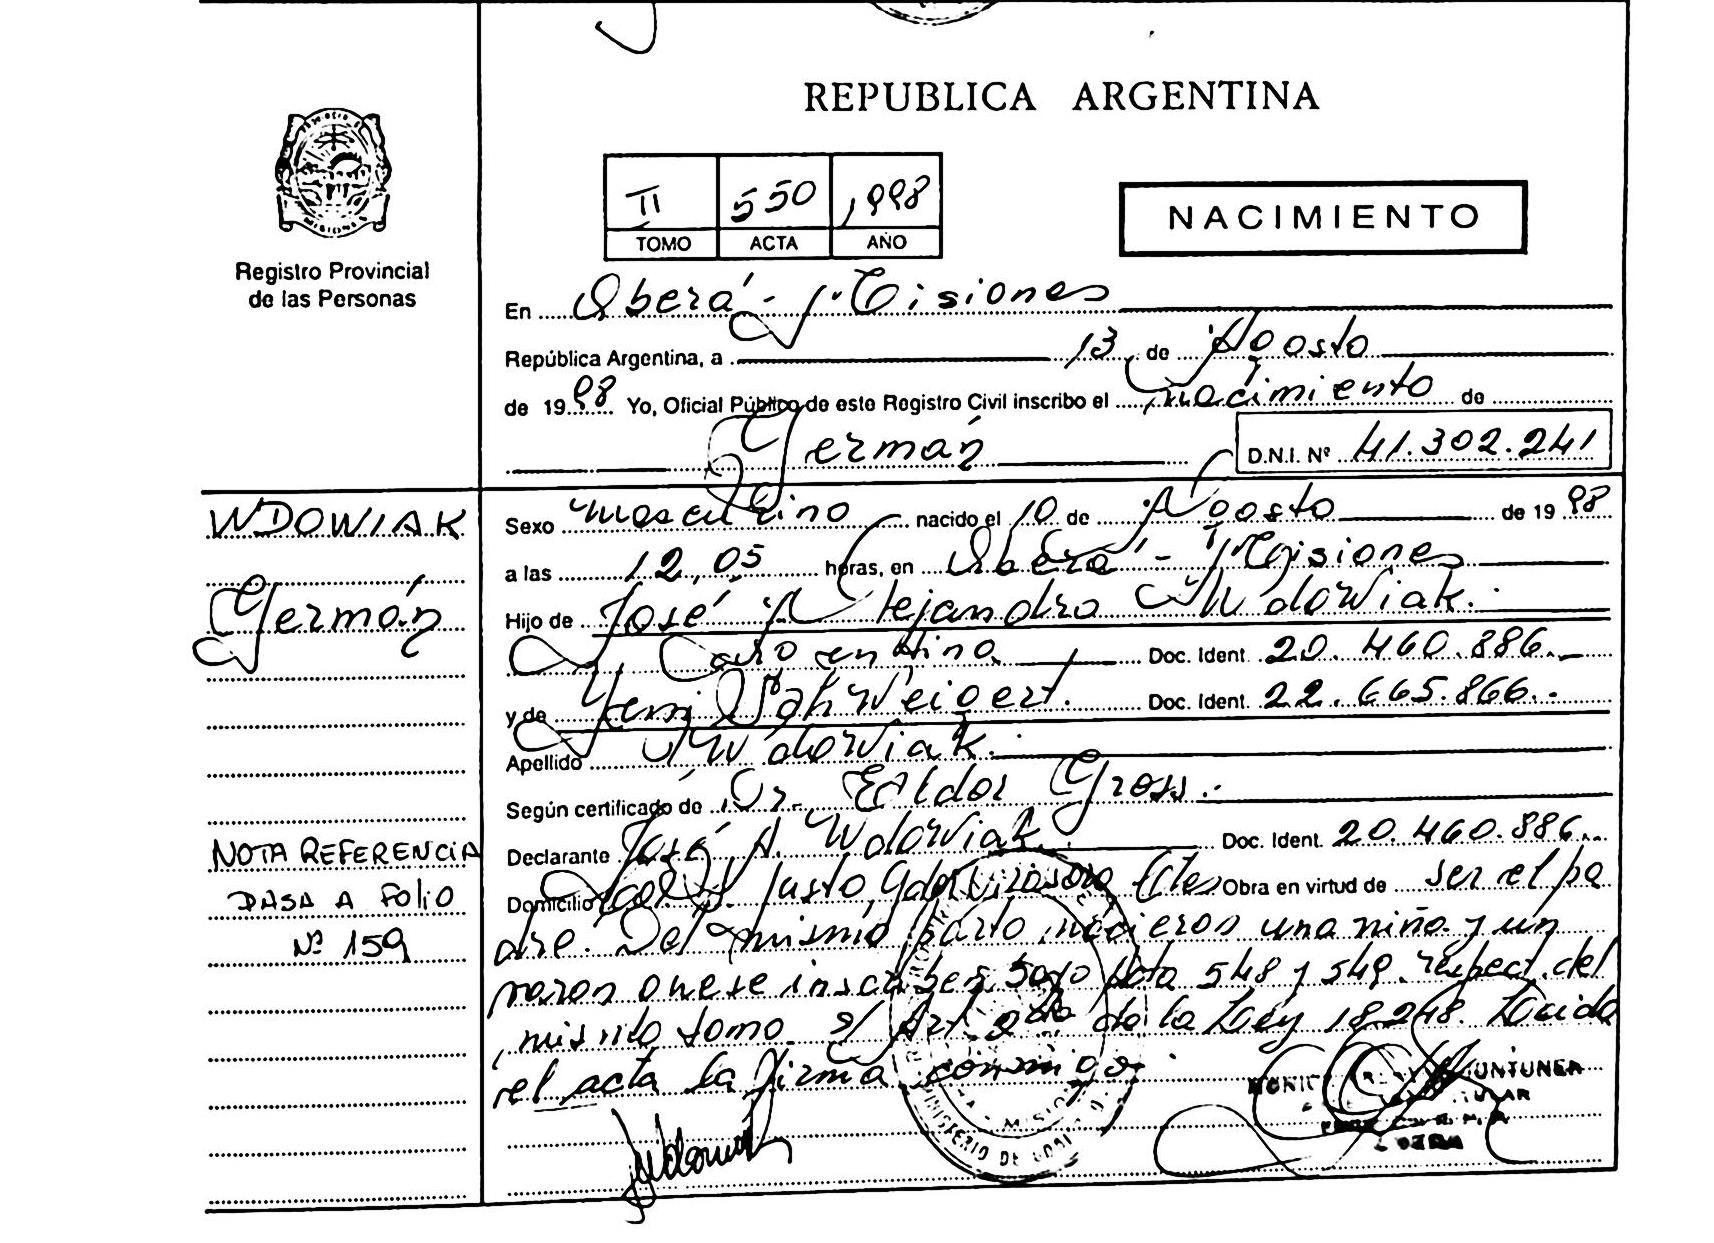 REPUBLICA ARGENTINA
II 550 1998
TOMO ACTA AÑO
NACIMIENTO
Registro Provincial
de las Personas
En Oberá - Misiones
República Argentina, a 13 de Agosto
de 1998 Yo, Oficial Público de este Registro Civil inscribo el nacimiento de
Germán
D.N.I. Nº 41.302.241
WDOWIAK
Germán
NOTA REFERENCIA
PASA A FOLIO
Nº 159
Sexo masculino nacido el 10 de Agosto de 1998
a las 12,05 horas, en Oberá - Misiones
Hijo de José Alejandro Wdowiak.
Argentina Doc. Ident. 20.460.886.-
y de Doc. Ident. 22.665.866.-
Apellido Wdowiak.
Según certificado de Dr. Gross.-
Declarante José A. Wdowiak. Doc. Ident. 20.460.886.-
Domicilio Justo, Gdor. Virasoro Ctes Obra en virtud de ser el pa
dre. Del mismo parto nacieron una niña y un
varon que se inscriben bajo acta 548 y 549. respect. del
mismo tomo. s/ Art. 2do de la Ley 18.248. Leida
el acta la firma conmigo.
MINISTERIO DE GOBIERNO
MISIONES
TITULAR
OBERA